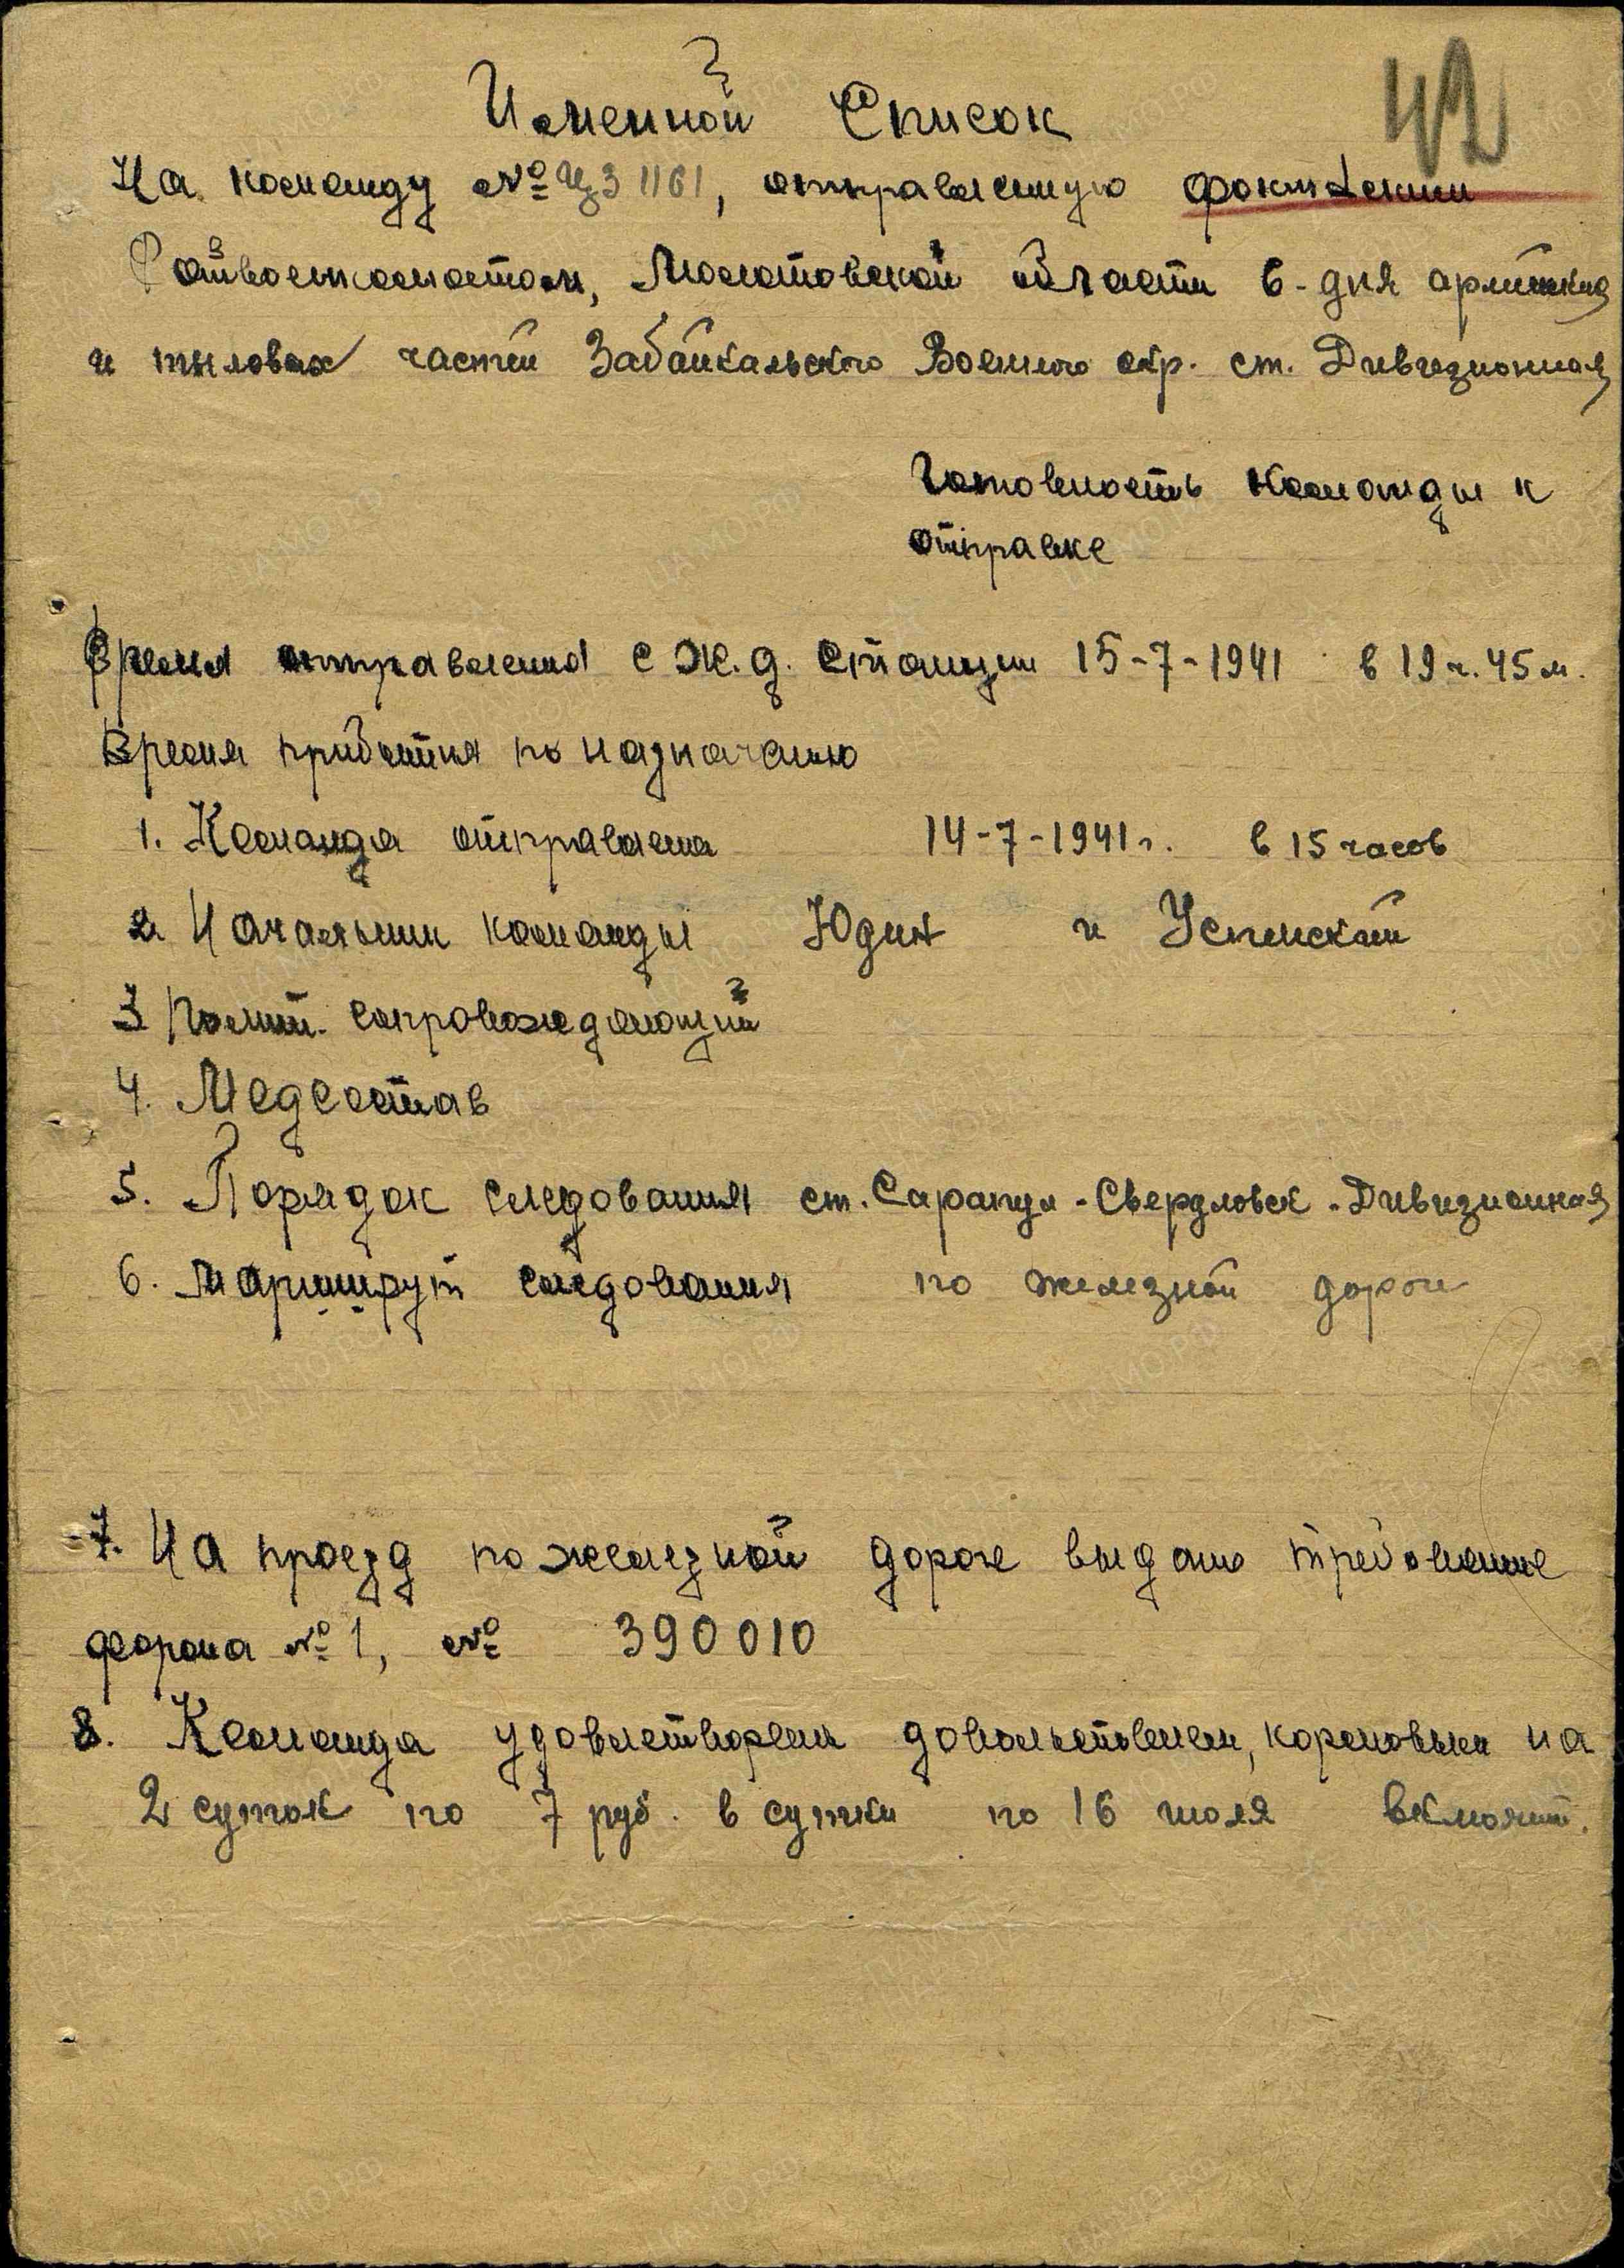 42
Именной Список
На команду № ЦЗ 1161, отправленную Фокинским
Райвоенкоматом, Молотовской области 6 - дня армейских
и тыловых частей Забайкальского Военного окр. ст. Дивизионная
Готовность команды к
отправке
Время отправления с ж.д. станции 15-7-1941 в 19 ч. 45 м.
Время прибытия по назначению
1. Команда отправлена 14-7-1941 г. в 15 часов
2. Начальник команды Юдин и Успенский
3 Полит. сопровождающий
4. Медсостав
5. Порядок следования ст. Сарапул - Свердловск - Дивизионная
6. Маршрут следования по железной дороге
7. На проезд по железной дороге выдано требование
форма № 1, № 390010
8. Команда удовлетворена довольствием, кормовыми на
2 суток по 7 руб. в сутки по 16 июля включит.